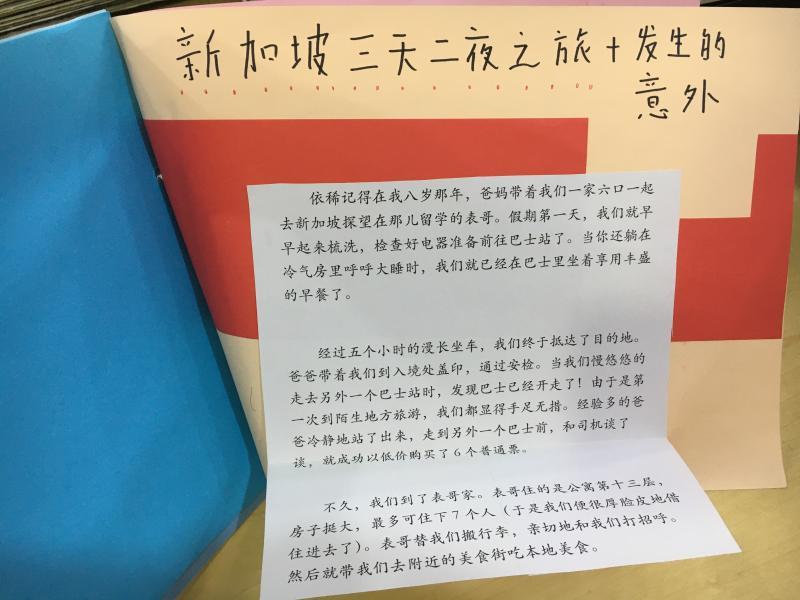 新加坡三天二夜之旅+发生的
意外
依稀记得在我八岁那年，爸妈带着我们一家六口一起
去新加坡探望在那儿留学的表哥。假期第一天，我们就早
早起来梳洗，检查好电器准备前往巴士站了。当你还躺在
冷气房里呼呼大睡时，我们就已经在巴士里坐着享用丰盛
的早餐了。
经过五个小时的漫长坐车，我们终于抵达了目的地。
爸爸带着我们到入境处盖印，通过安检。当我们慢悠悠的
走去另外一个巴士站时，发现巴士已经开走了！由于是第
一次到陌生地方旅游，我们都显得手足无措。经验多的爸
爸冷静地站了出来，走到另外一个巴士前，和司机谈了
谈，就成功以低价购买了6个普通票。
不久，我们到了表哥家。表哥住的是公寓第十三层，
房子挺大，最多可住下7个人（于是我们便很厚脸皮地借
住进去了）。表哥替我们搬行李，亲切地和我们打招呼。
然后就带我们去附近的美食街吃本地美食。